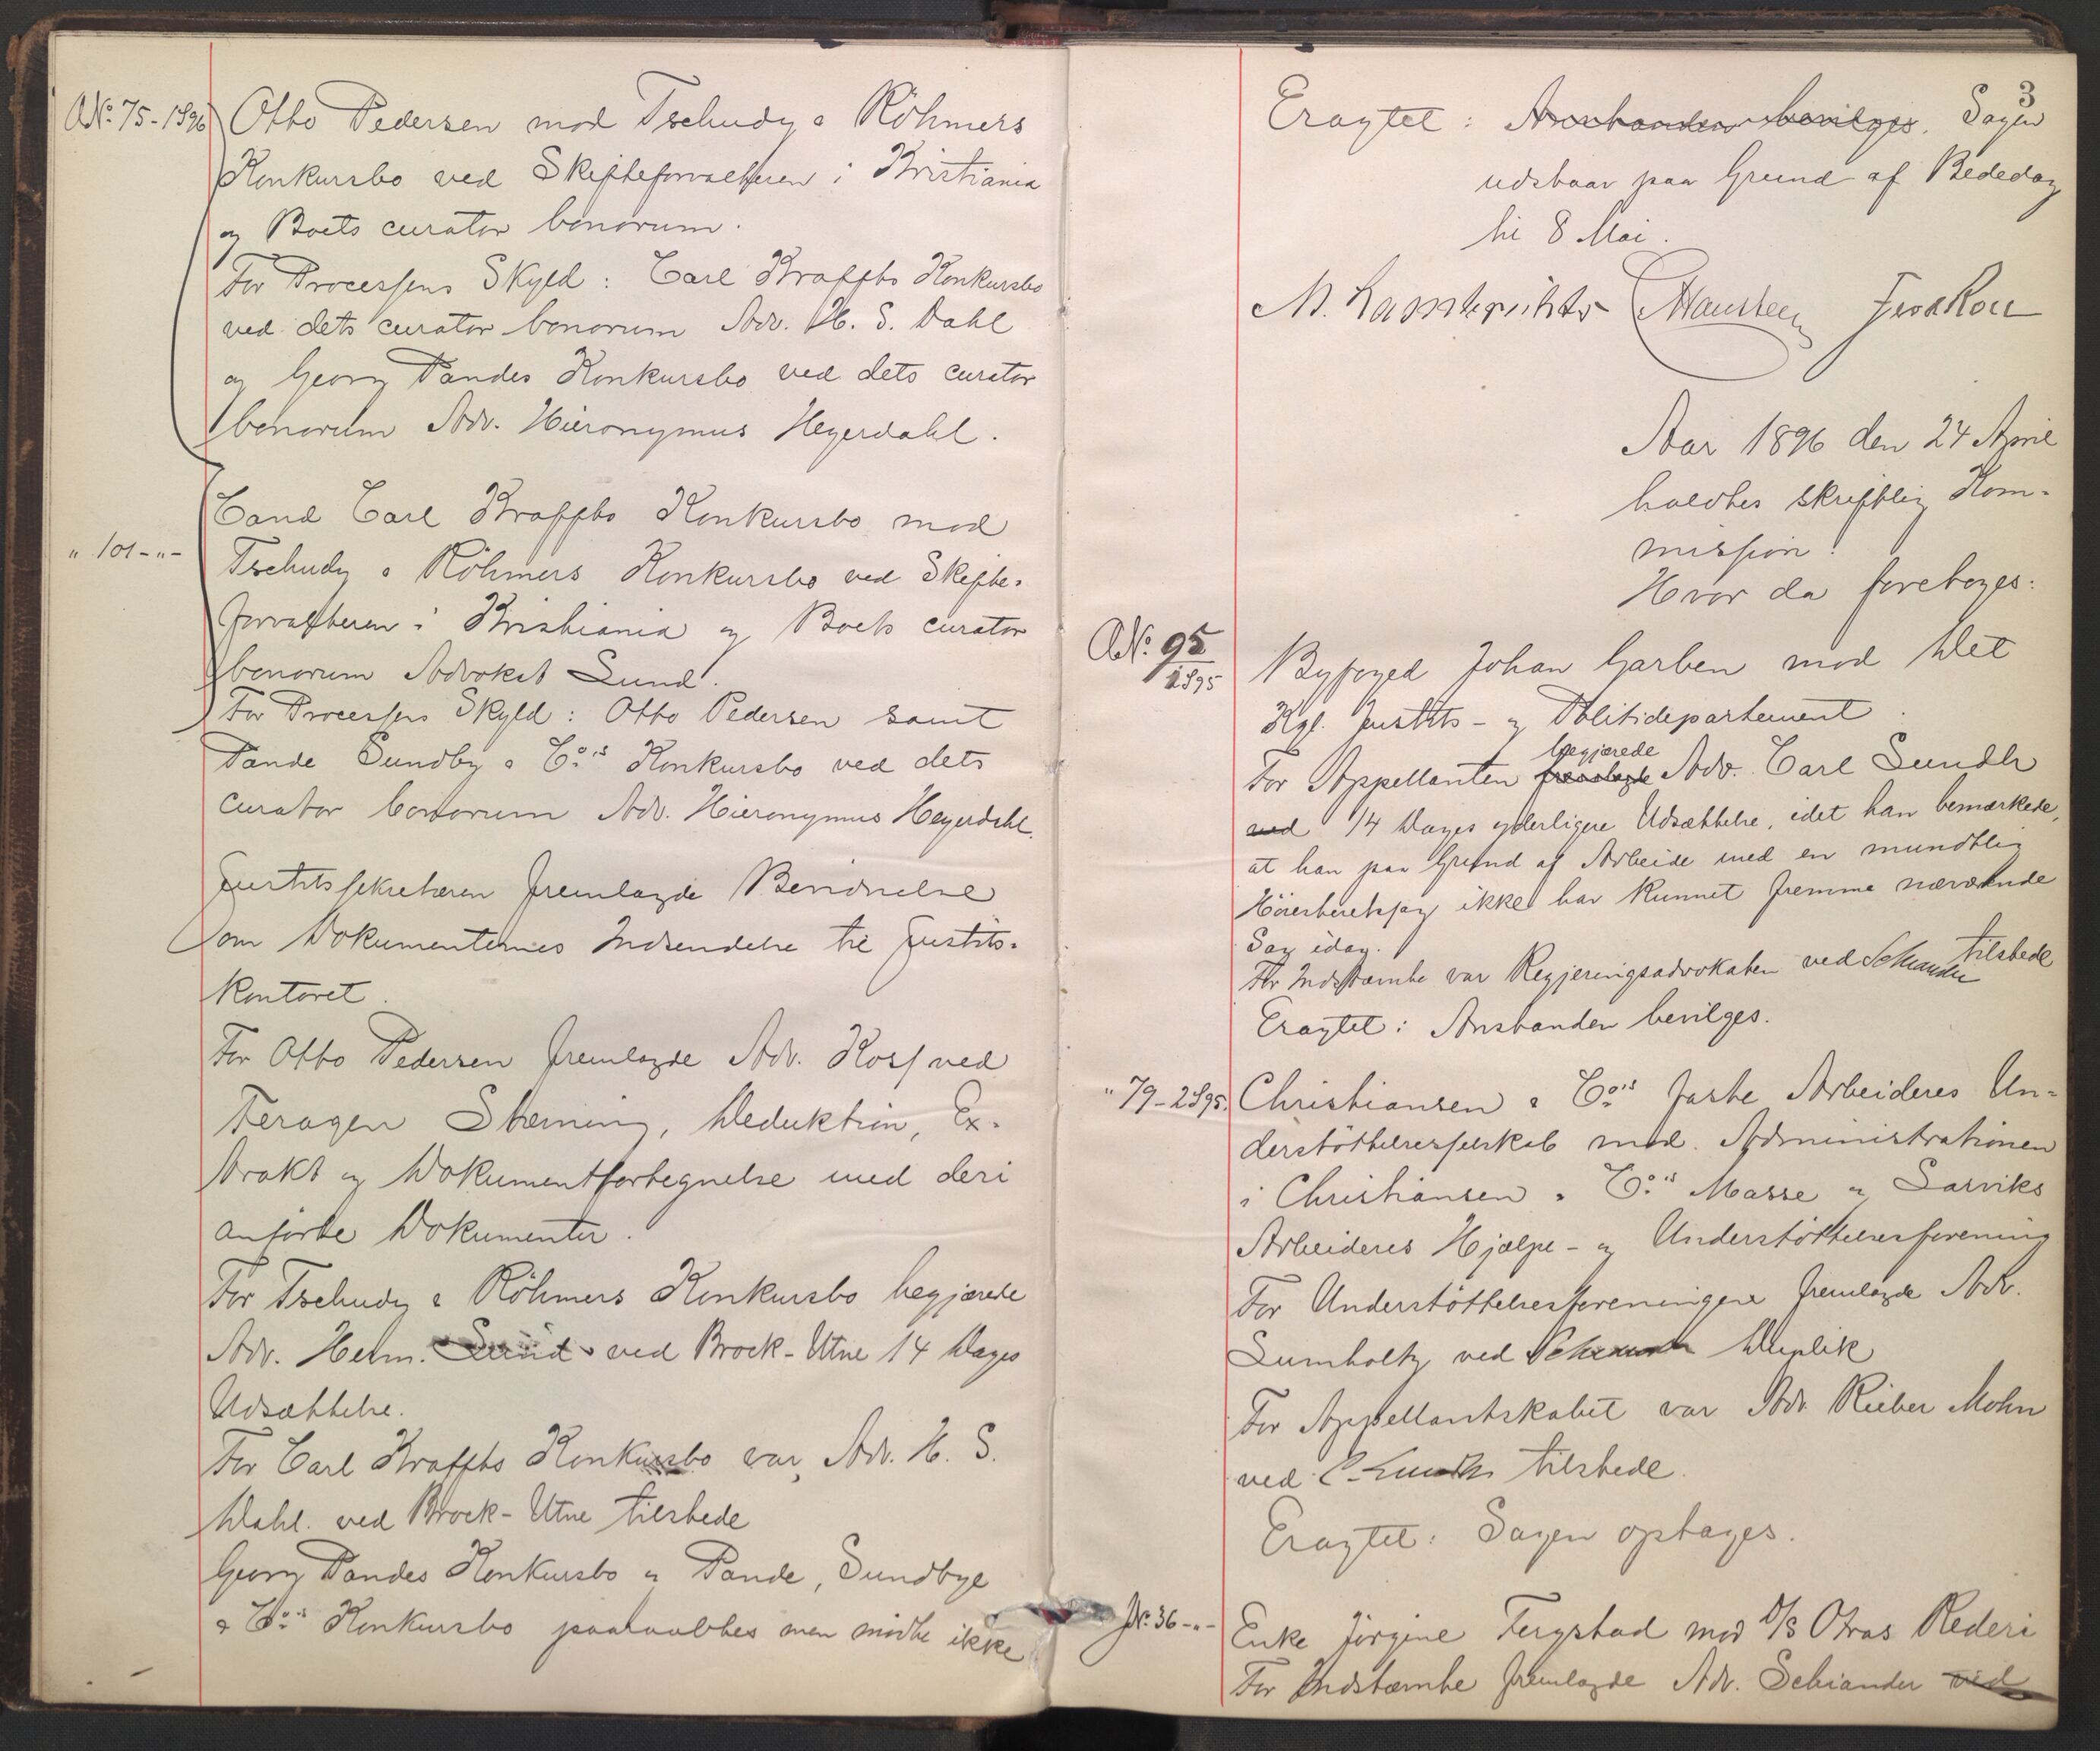 A.No. 75-1896
Otto Pedersen mod Tschudy & Röhmers
Konkursbo ved Skifteforvalteren i Kristiania
og Boets curator bonorum.
For Processens Skyld: Carl Kraffts Konkursbo
ved dets curator bonorum Adv. H. S. Dahl
og Georg Pandes Konkursbo ved dets curator
bonorum Adv. Hieronymus Heyerdahl.
" 101-"-
Cand Carl Kraffts Konkursbo mod
Tschudy & Röhmers Konkursbo ved Skifte-
forvalteren i Kristiania og Boets curator
bonorum Advokat Lund.
For Processens Skyld: Otto Pedersen samt
Pande Sundby & Co's Konkursbo ved dets
curator bonorum Adv. Hieronymus Heyerdahl.
Justitssekretæren fremlagde Bevidnelse
om Dokumenternes Indsendelse til Justits-
kontoret.
For Otto Pedersen fremlagde Adv. Ross ved
Feragen Stevning, Deduktion, Ex-
trakt og Dokumentfortegnelse med deri
anførte Dokumenter.
For Tschudy & Röhmers Konkursbo begjærede
Adv. Helm. Lund ved Brock-Utne 14 Dages
Udsættelse.
For Carl Kraffts Konkursbo var Adv. H. S.
Dahl. ved Brock-Utne tilstede
Georg Pandes Konkursbo og Pande, Sundbye
& Co's Konkursbo paaraabtes men mødte ikke
3
Eragtet: Anstanden bevilges. Sagen
udstaar paa Grund af Bededag
til 8 Mai.
Aar 1896 den 24 April
holdtes skriftlig Kom-
mission.
Hvor da foretoges:
A.No. 95/1895
Byfoged Johan Garben mod Det
Kgl. Justits- og Politidepartement.
begjærede
For Appellanten fremlagde Adv. Carl Lundh
ved 14 Dages yderligere Udsættelse, idet han bemærkede,
at han paa Grund af Arbeide med en mundtlig
Høiesteretssag ikke har kunnet fremme nærværende
Sag idag.
For Indstævnte var Regjeringsadvokaten ved Schiander tilstede
Eragtet: Anstanden bevilges.
" 79-2895.
Christiansen & Co's faste Arbeideres Un-
derstøttelsesselskab mod Administrationen
i Christiansen & Co's Masse og Larviks
Arbeideres Hjælpe- og Understøttelsesforening
For Understøttelsesforeningen fremlagde Adv.
Lumholtz ved Schiander Duplik
For Appellantskabet var Adv. Rieber Mohn
ved C. Lundh tilstede.
Eragtet: Sagen optages.
J.No. 36-"-
Enke Jørgine Fergstad mod D/S Otras Rederi
For Indstævnte fremlagde Adv. Schiander ved